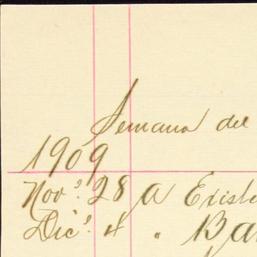 Semana del
1909
Novᵉ. 28 A Existe
Dicᵉ. 4 " Ba